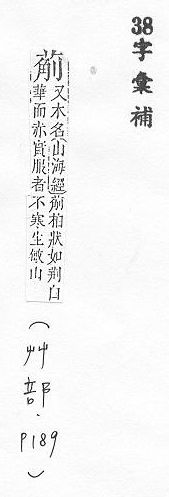 38字彙補
葪
又木名山海經葪柏狀如荆白
華而赤實服者不寒生敏山
（艸部．P189）